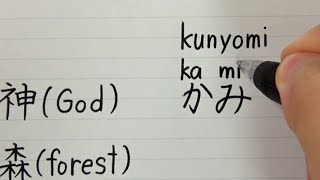 kunyomi
ka mi
かみ
神(God)
森(forest)